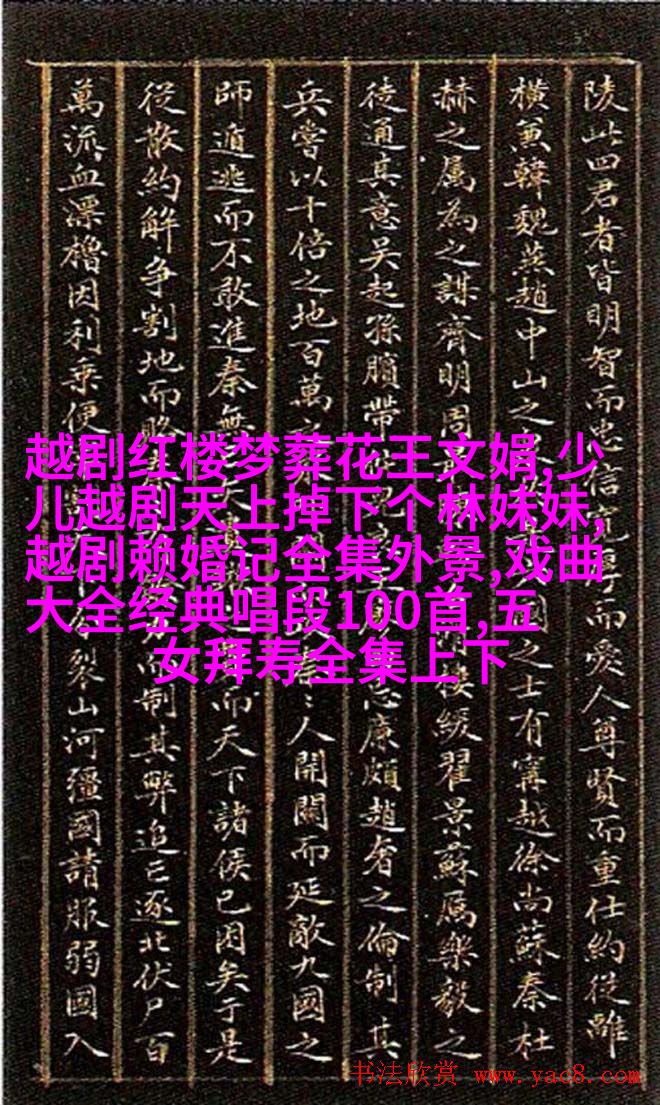 陵此四君者皆明智而忠信寬厚而愛人尊賢而重仕約從離
橫兼韓魏燕趙中山之國之士有甯越徐尚蘇秦杜
赫之属為之謀齊明周樓緩翟景蘇厲樂毅之
徒通其意吳起孫臏帶忌廉頗趙奢之倫制其
兵嘗以十倍之地百萬人開關而延敵九國之
師遁逃而不敢進秦無而天下諸侯已困矣于是
從散約解爭割地而賂而制其弊追亡逐北伏尸百
萬流血漂櫓因利乘便裂山河彊國請服弱國入
越剧红楼梦葬花王文娟,少
儿越剧天上掉下个林妹妹,
越剧赖婚记全集外景,戏曲
大全经典唱段100首,五
女拜寿全集上下
书法欣赏 www.yac8.com